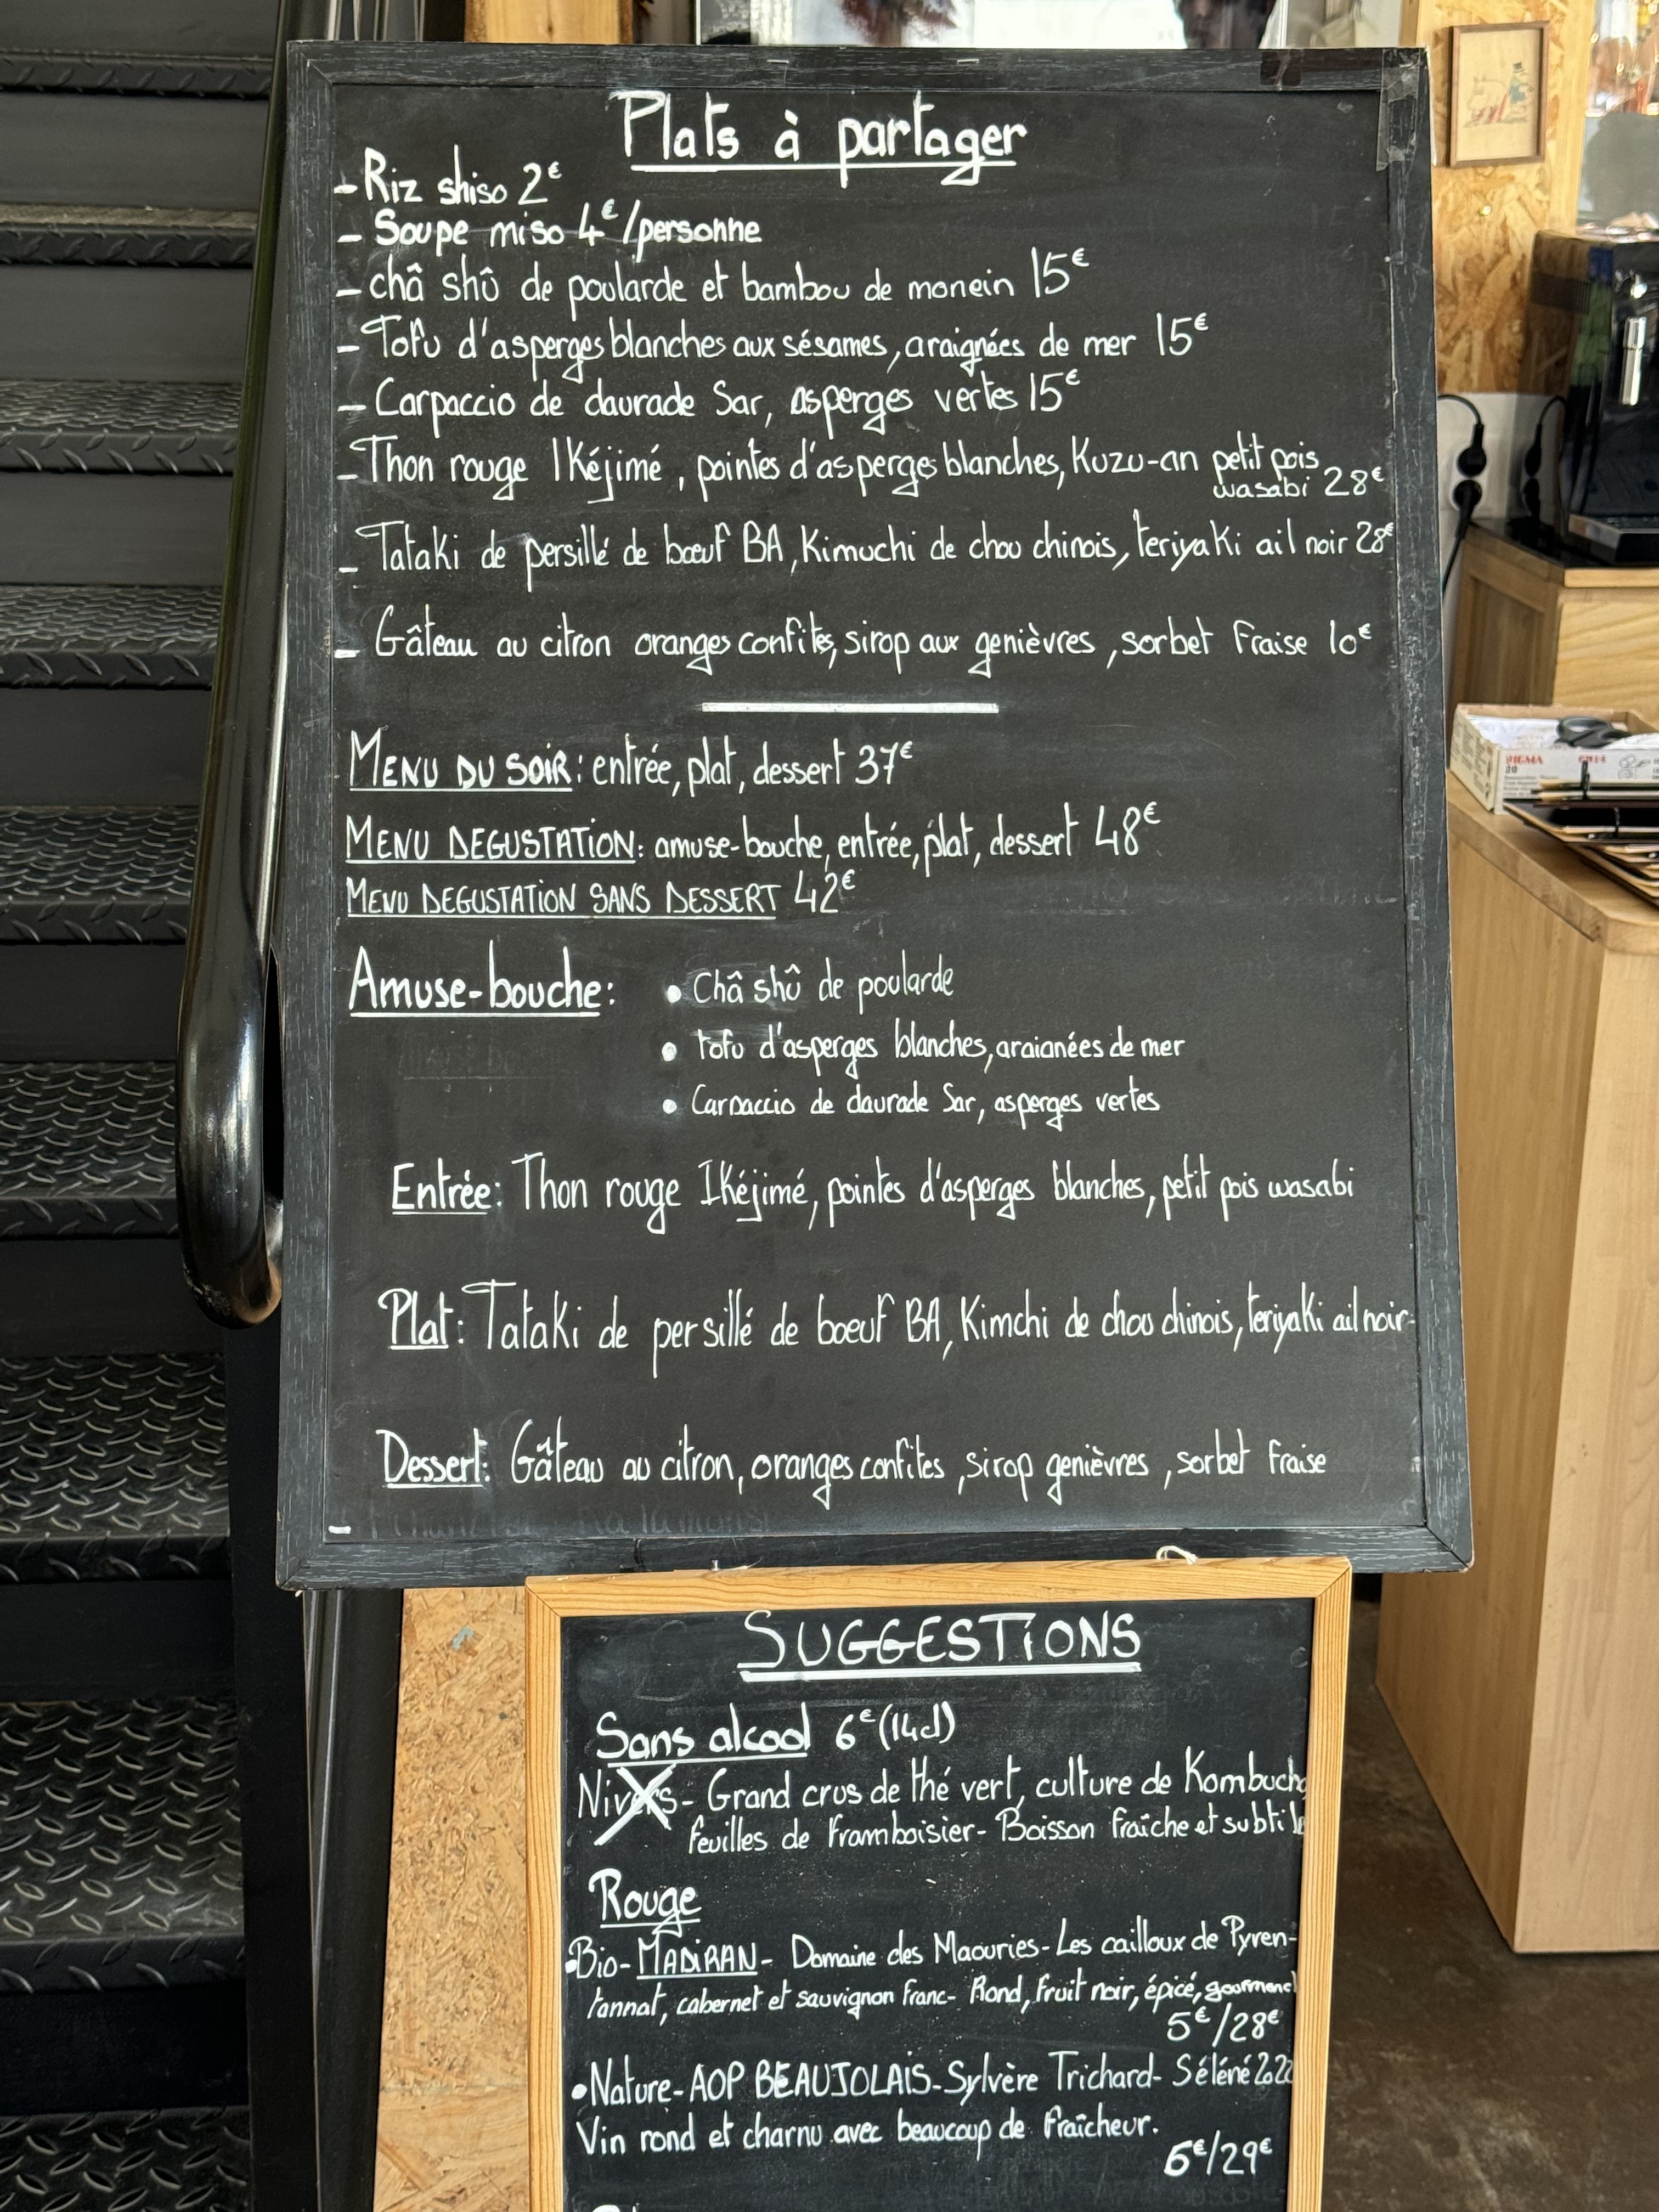 Plats à partager
- Riz shiso 2€
- Soupe miso 4€/personne
- châ shû de poularde et bambou de monein 15€
- Tofu d'asperges blanches aux sésames, araignées de mer 15€
- Carpaccio de daurade Sar, asperges vertes 15€
- Thon rouge IKéjimé, pointes d'asperges blanches, Kuzu-an petit pois
wasabi 28€
- Tataki de persillé de bœuf BA, Kimuchi de chou chinois, teriyaki ail noir 28€
- Gâteau au citron oranges confites, sirop aux genièvres, sorbet fraise 10€
MENU DU SOIR: entrée, plat, dessert 37€
MENU DEGUSTATION: amuse-bouche, entrée, plat, dessert 48€
MENU DEGUSTATION SANS DESSERT 42€
Amuse-bouche: • Châ shû de poularde
• tofu d'asperges blanches, araianées de mer
• Carpaccio de daurade Sar, asperges vertes
Entrée: Thon rouge IKéjimé, pointes d'asperges blanches, petit pois wasabi
Plat: Tataki de persillé de boeuf BA, Kimchi de chou chinois, teriyaki ail noir-
Dessert: Gâteau au citron, oranges confites, sirop genièvres, sorbet fraise
SUGGESTIONS
Sans alcool 6€ (14cl)
Nivers - Grand crus de thé vert, culture de Kombucha
feuilles de framboisier - Boisson fraîche et subtile
Rouge
• Bio - MADIRAN - Domaine des Maouries - Les cailloux de Pyren -
tannat, cabernet et sauvignon franc - Rond, fruit noir, épicé, gourmand
5€/28€
• Nature - AOP BEAUJOLAIS - Sylvère Trichard - Séléné 2022
Vin rond et charnu avec beaucoup de fraîcheur.
6€/29€